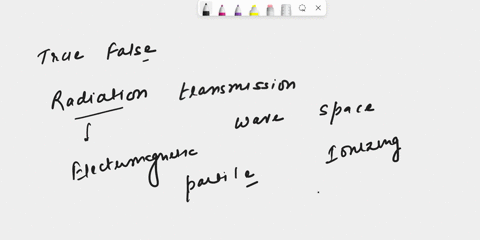 True False
Radiation transmission
wave space
Electromagnetic
particle
Ionizing